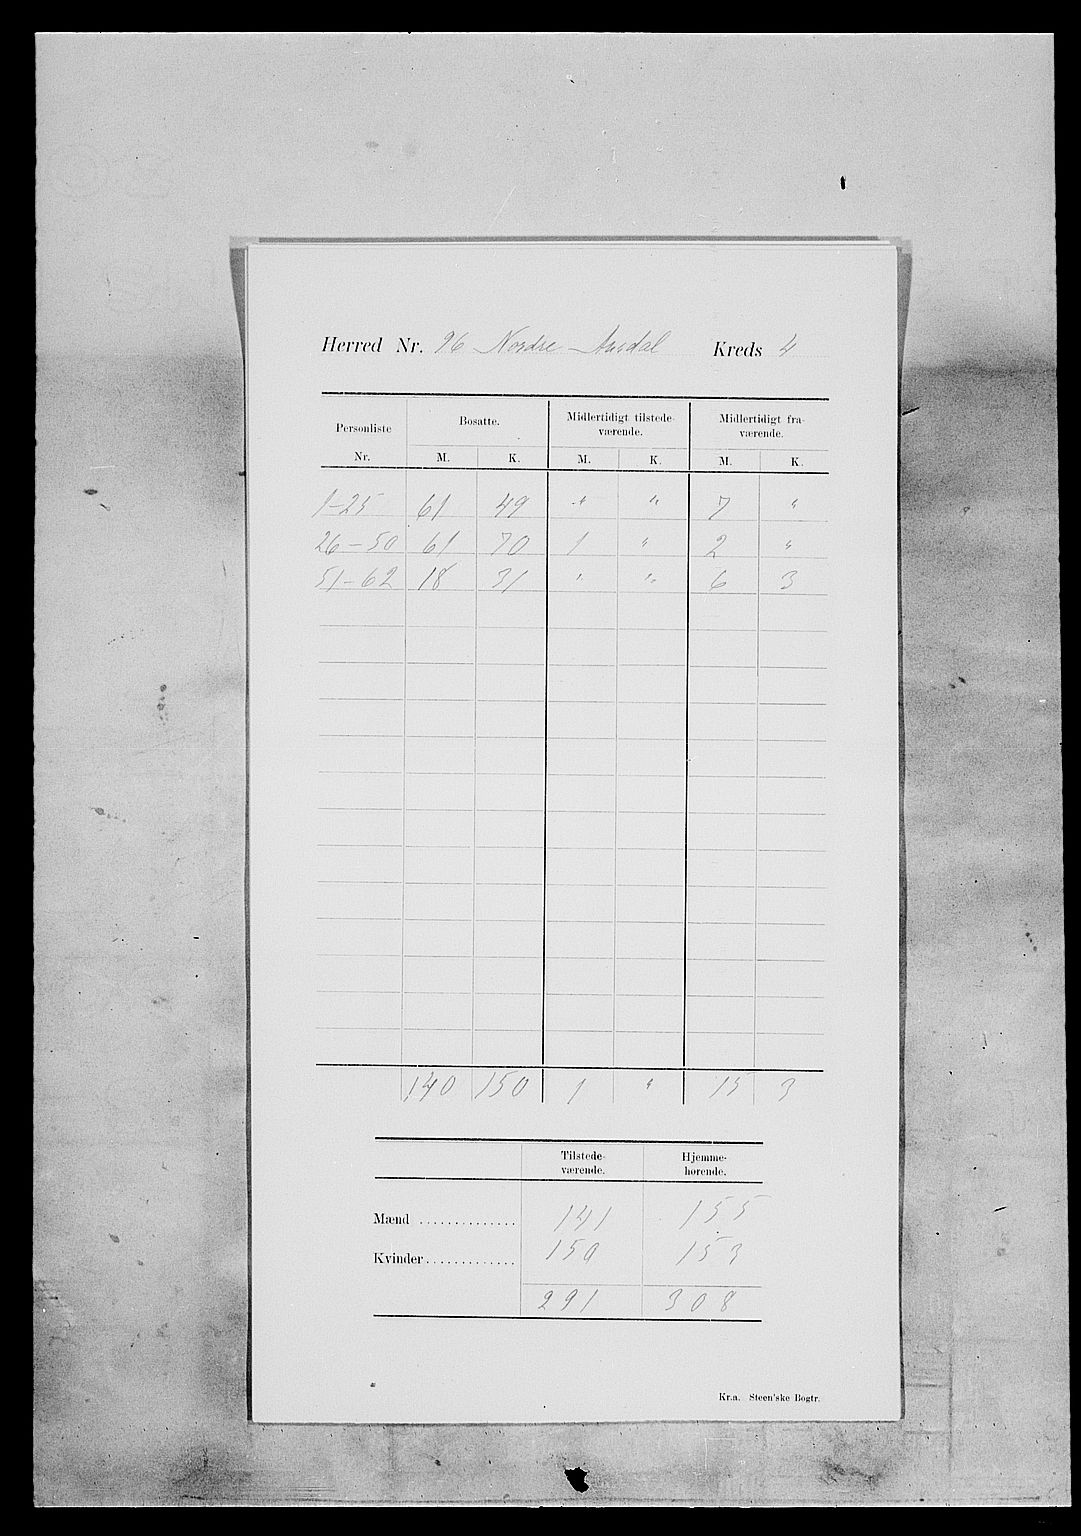 Herred Nr. 26 Nordre Aurdal Kreds 4
Personliste Bosatte. Midlertidigt tilstede- Midlertidigt fra-
værende. værende.
Nr. M. K. M. K. M. K.
1-25 61 49 " " 7 "
26-50 61 70 1 " 2 "
51-62 18 31 " " 6 3
140 150 1 " 15 3
Tilstede- Hjemme-
værende. hørende.
Mænd .............. 141 155
Kvinder ............. 150 153
291 308
Kr.a. Steen'ske Bogtr.